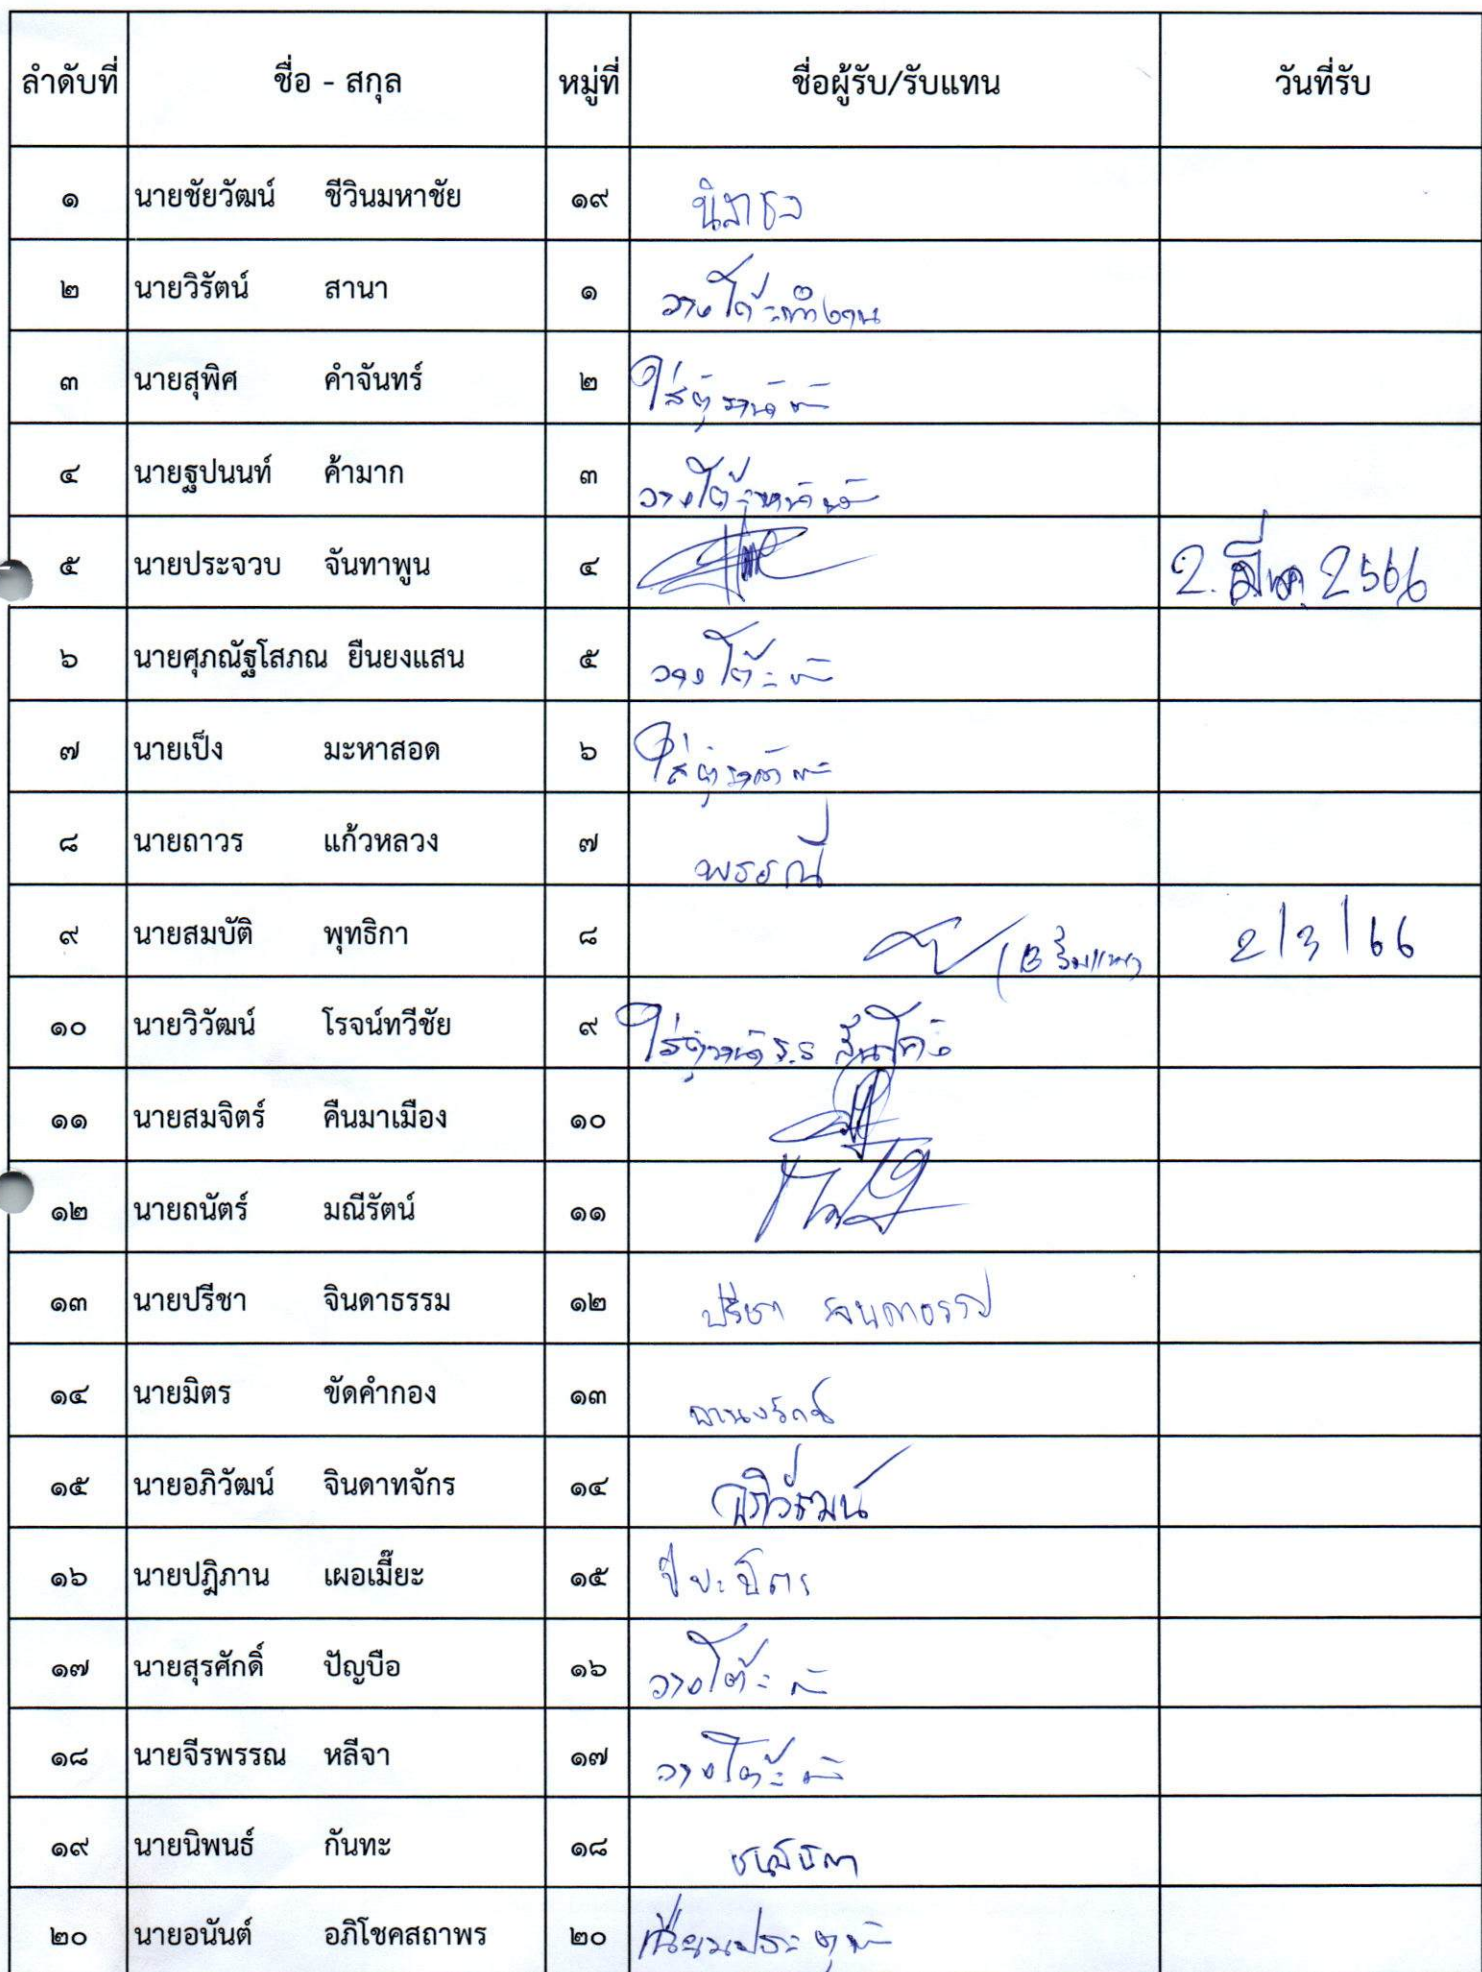 ลำดับที่ ชื่อ - สกุล หมู่ที่ ชื่อผู้รับ/รับแทน วันที่รับ
๑ นายชัยวัฒน์ ชีวินมหาชัย ๑๙
๒ นายวิรัตน์ สานา ๑ วางโต๊ะทำงาน
๓ นายสุพิศ คำจันทร์ ๒
๔ นายฐปนนท์ ค้ามาก ๓ วางโต๊ะ
๕ นายประจวบ จันทาพูน ๔ 2. มีนา 2566
๖ นายศุภณัฐโสภณ ยืนยงแสน ๕ วางโต๊ะ
๗ นายเป็ง มะหาสอด ๖
๘ นายถาวร แก้วหลวง ๗ พรรณี
๙ นายสมบัติ พุทธิกา ๘ 2/3/66
๑๐ นายวิวัฒน์ โรจน์ทวีชัย ๙
๑๑ นายสมจิตร์ คืนมาเมือง ๑๐
๑๒ นายถนัตร์ มณีรัตน์ ๑๑
๑๓ นายปรีชา จินดาธรรม ๑๒ ปรีชา จินดาธรรม
๑๔ นายมิตร ขัดคำกอง ๑๓
๑๕ นายอภิวัฒน์ จินดาทจักร ๑๔ อภิวัฒน์
๑๖ นายปฎิภาน เผอเมี๊ยะ ๑๕
๑๗ นายสุรศักดิ์ ปัญบือ ๑๖ วางโต๊ะ
๑๘ นายจีรพรรณ หลีจา ๑๗ วางโต๊ะ
๑๙ นายนิพนธ์ กันทะ ๑๘
๒๐ นายอนันต์ อภิโชคสถาพร ๒๐